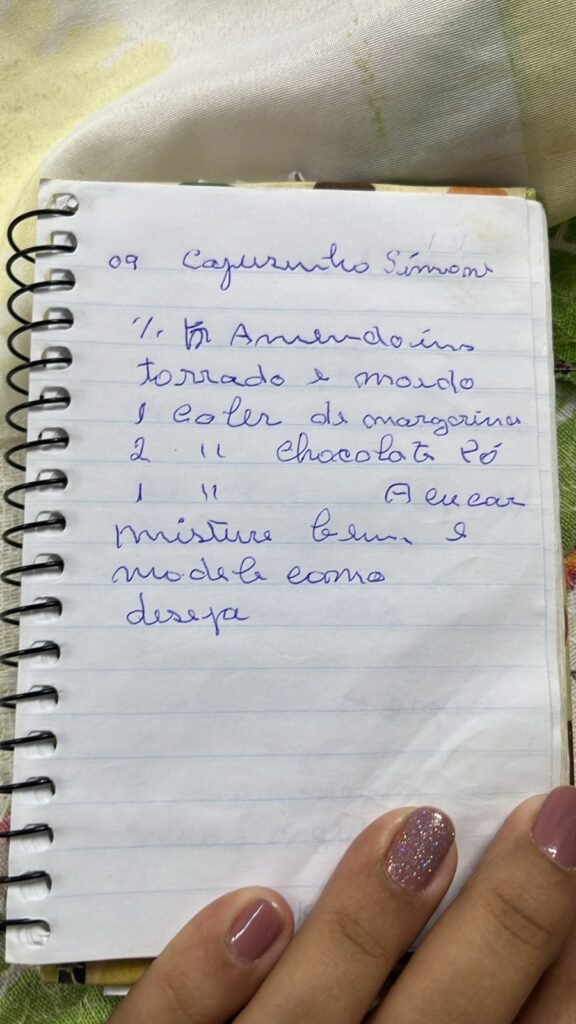 09 Cajuzinho Simone
½ K Amendoins
torrado e moido
1 Coler de margarina
2 " Chocolate Pó
1 " Açucar
misture bem e
modele como
deseja